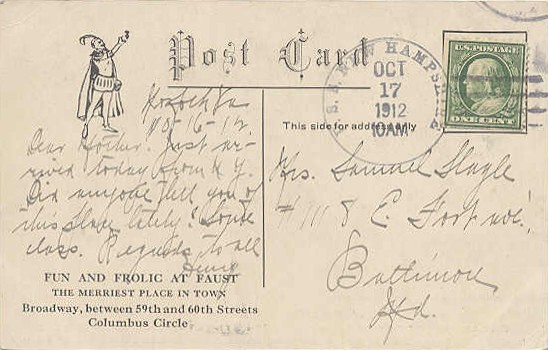 Post Card
U.S.S. NEW HAMPSHIRE
OCT
17
1912
10AM
U.S. POSTAGE
ONE CENT
This side for address only
10-16-12
Dear Mother. Just ar-
rived today from N.Y.
Did anyone tell you of
this place lately? Some
class. Regards to all
Henry
Mrs. Samuel Slagle
#1118 E. Fort Ave.,
Baltimore
Md.
FUN AND FROLIC AT FAUST
THE MERRIEST PLACE IN TOWN
Broadway, between 59th and 60th Streets
Columbus Circle